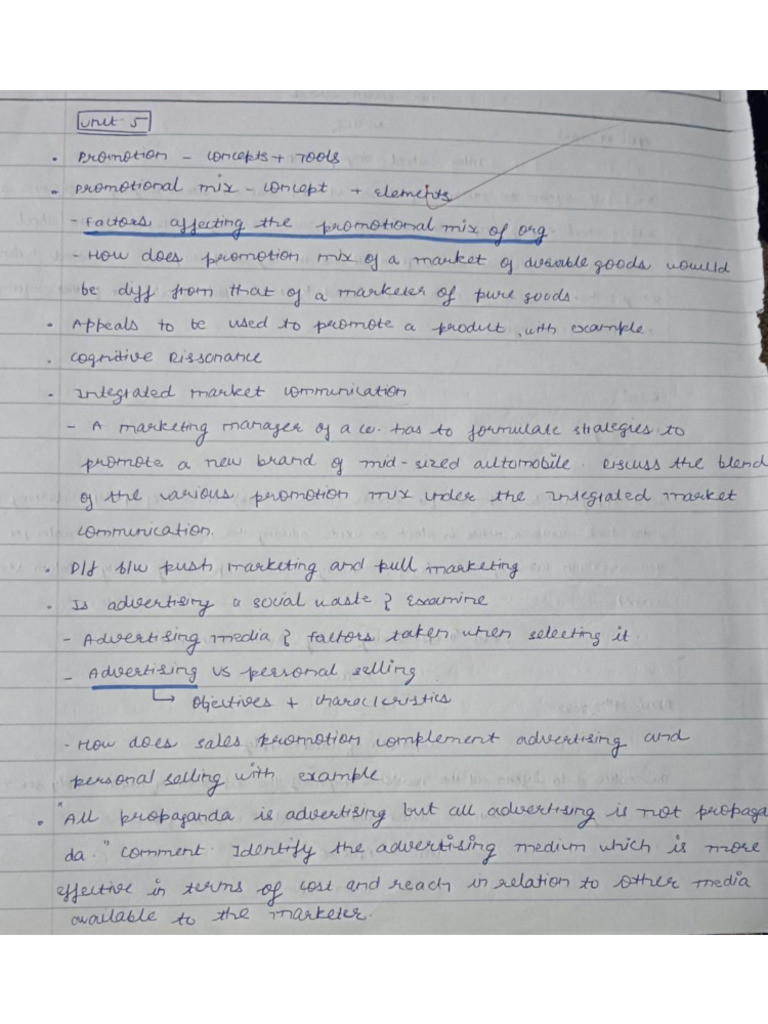 Unit 5
• Promotion - concepts + Tools
• Promotional mix - concept + elements
- Factors affecting the promotional mix of org
- How does promotion mix of a market of durable goods would
be diff from that of a marketer of pure goods.
• Appeals to be used to promote a product, with example.
• Cognitive Rissonance
• Integrated market communication
- A marketing manager of a co. has to formulate strategies to
promote a new brand of mid-sized automobile. Discuss the blend
of the various promotion mix under the Integrated market
communication.
• D/f b/w push marketing and pull marketing
• Is advertising a social waste? Examine
- Advertising media & factors taken when selecting it.
- Advertising vs personal selling
↳ Objectives + characteristics
- How does sales promotion complement advertising and
personal selling with example
• "All propaganda is advertising but all advertising is not propagan
da." Comment. Identify the advertising medium which is more
effective in terms of cost and reach in relation to other media
available to the marketer.